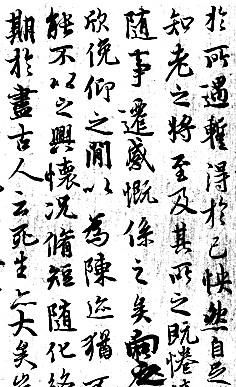 於所遇暫得於己快然自足
知老之將至及其所之既惓
隨事遷感慨係之矣向
欣俛仰之間以為陳迹猶不
能不以之興懷況脩短隨化終
期於盡古人云死生亦大矣